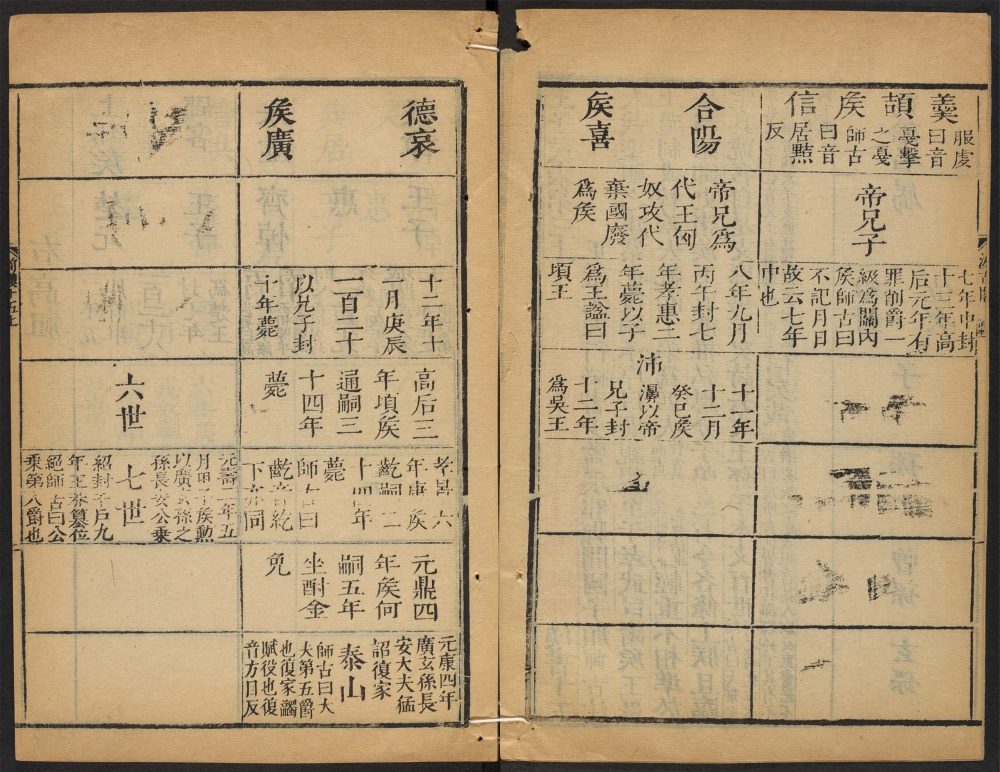 羹
服虔
曰音
頡
戛擊
之戛
矦
師古
曰音
信
居黠
反
帝兄子
七年中封
十三年高
后元年有
罪削爵一
級爲關內
矦師古曰
不記月日
故云七年
中也
合陽
矦喜
帝兄爲
代王匈
奴攻代
棄國廢
爲矦
八年九月
丙午封七
年孝惠二
年薨以子
爲王謚曰
頃王
沛
十一年
十二月
癸巳矦
濞以帝
兄子封
十二年
爲吳王
德哀
矦廣
十二年十
一月庚辰
二百二十
以兄子封
十年薨
高后三
年頃矦
通嗣三
十四年
薨
六
年 矦
齕嗣二
十四年
薨
師古曰
齕音紇
下亦同
元鼎四
年矦何
嗣五年
坐酎金
免
泰山
元康四年
廣玄孫長
安大夫猛
詔復家
師古曰大
夫第五爵
也復家蠲
賦役也復
音方目反
六世
七世
元壽二年五
月甲子矦勲
以廣玄孫之
孫長安公乗
紹封千戶九
年王莽篡位
絕師古曰公
乗第八爵也